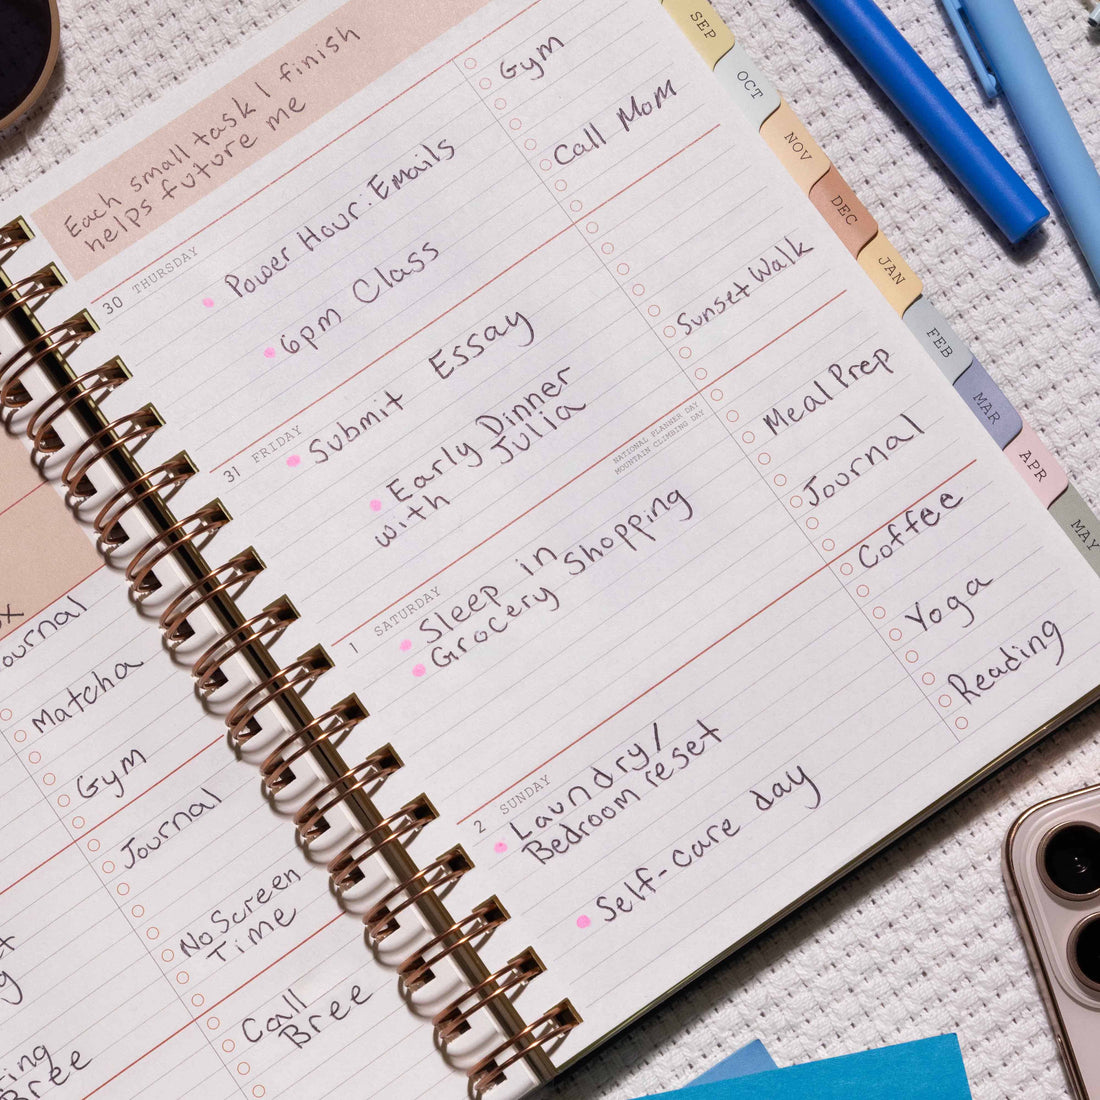 Each small task I finish
helps future me
30 THURSDAY
Power Hour: Emails
6pm Class
Gym
Call Mom
31 FRIDAY
NATIONAL PLANNER DAY
MOUNTAIN CLIMBING DAY
Submit Essay
Early Dinner
with Julia
Sunset Walk
1 SATURDAY
Sleep in
Grocery Shopping
Meal Prep
Journal
2 SUNDAY
Laundry/
Bedroom reset
Self-care day
Coffee
Yoga
Reading
Matcha
Gym
Journal
No Screen
Time
Call
Bree
Bree
SEP
OCT
NOV
DEC
JAN
FEB
MAR
APR
MAY